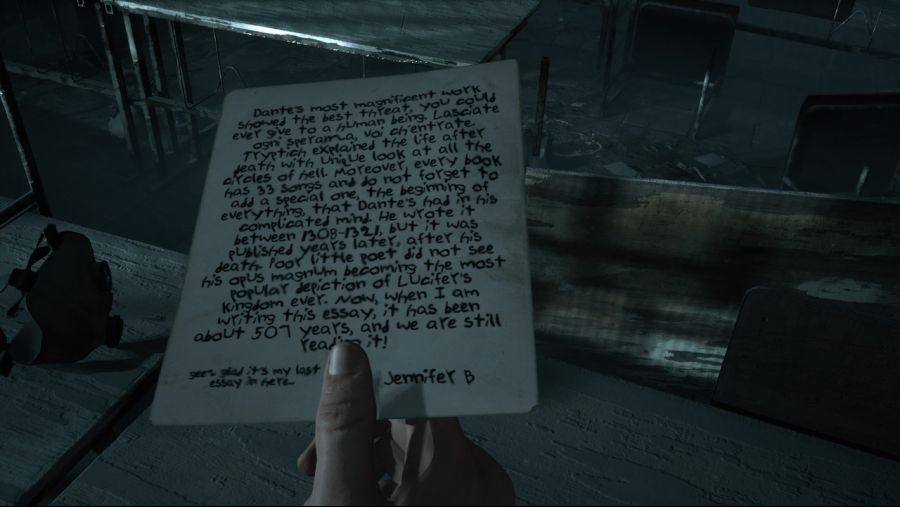 Dante's most magnificent work
showed the best threat, you could
ever give to a human being. Lasciate
ogni speranza, voi ch'entrate
Tryptich explained the life after
death with unique look at all the
circles of hell. Moreover, every book
has 33 songs and do not forget to
add a special one, the beginning of
everything, that Dante's had in his
complicated mind. He wrote it
between 1308-1321, but it was
published years later, after his
death poor little poet did not see
his opus magnum becoming the most
popular depiction of Lucifer's
kingdom ever. Now, when I am
writing this essay, it has been
about 507 years, and we are still
reading it!
geez glad it's my last
essay in here..
Jennifer B